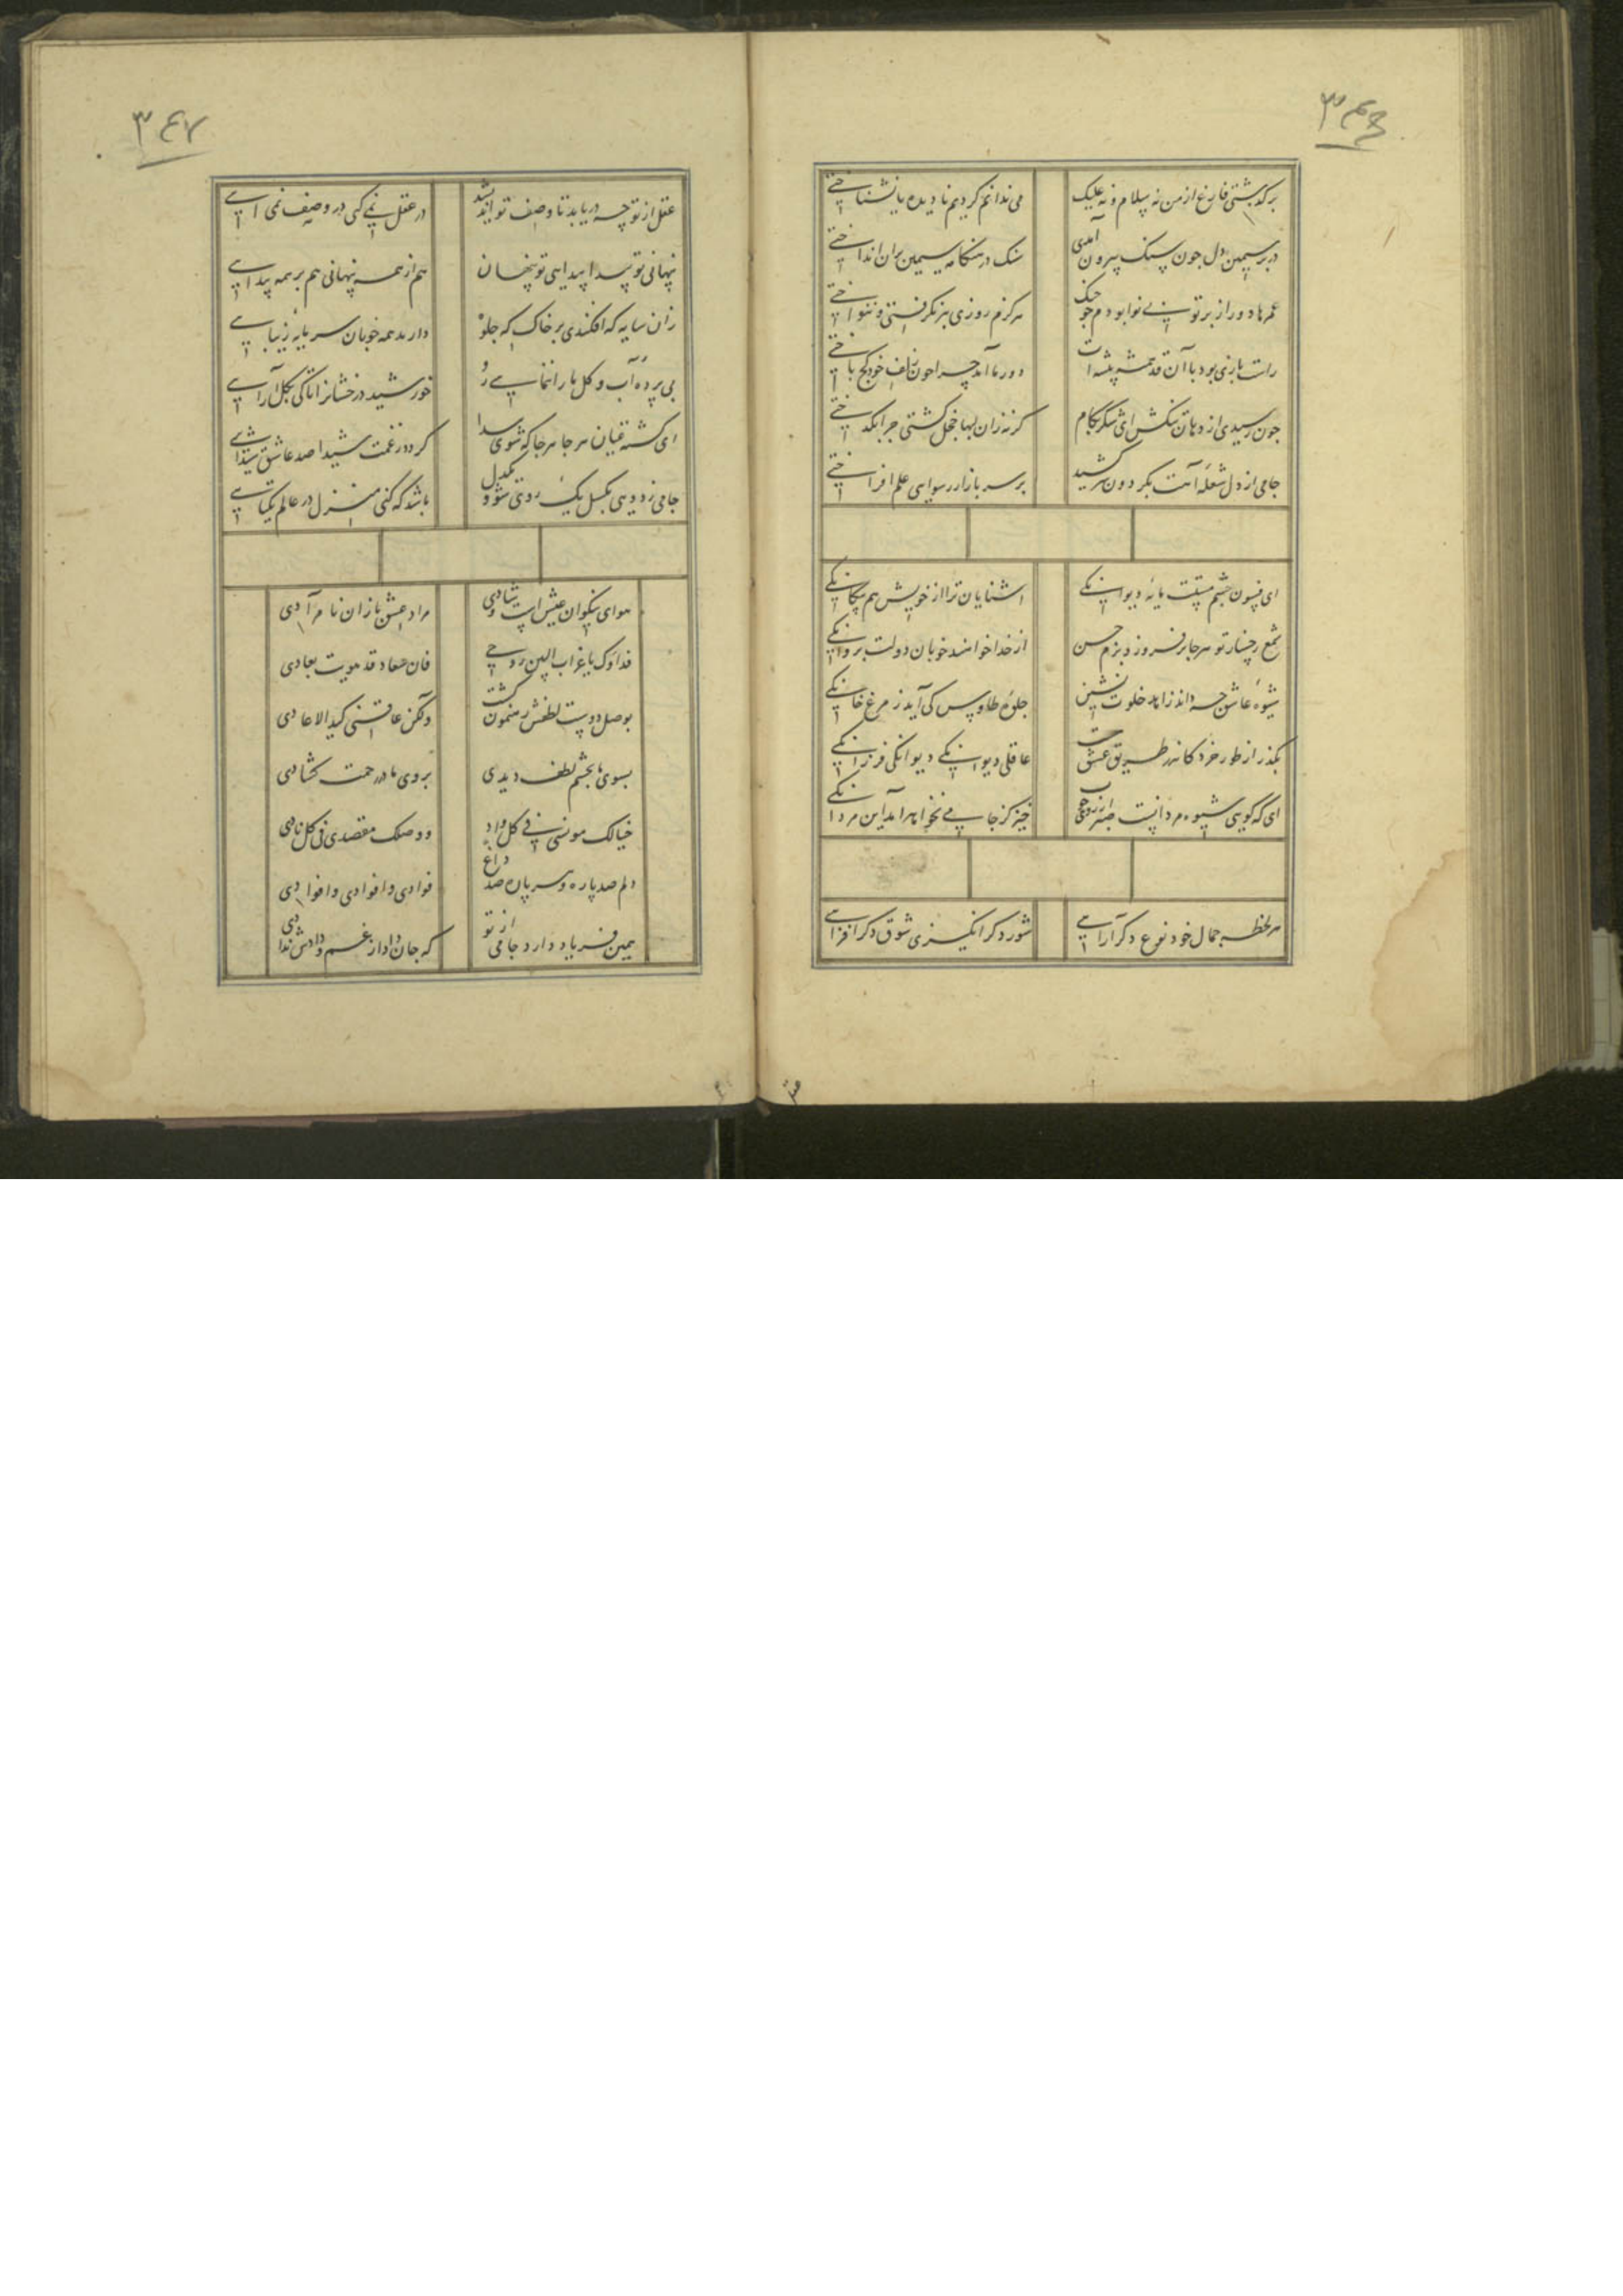 ۳۴۶
برگذشتی فارغ از من نه سلام و نه علیک
می ندانم کردیم نادیده یا نشناختی
در بر سیمین دل چون سنک بیرون آمدی
سنک در هنکامه سیمین بران انداختی
عمرها دور از بر تو بی نوا بودم چو چنک
هرکزم روزی ببر نکرفتی و ننواختی
راست بازی بود با آن قد همیشه پیشه ات
دور ما آمد چرا چون زلف خود کج باختی
چون رسیدی از دهان تنکش ای شکر بکام
کرنه زان لبها خجل کشتی چرا بکداختی
جامی از دل شعله آهت بکردون سر کشید
بر سر بازار رسوایی علم افراختی
ای فسون چشم مستت مایه دیوانکی
آشنایان ترا از خویش هم بیکانکی
شمع رخسار تو هر جا برفروزد بزم حسن
از خدا خواهند خوبان دولت پروانکی
شیوه عاشق چه داند زاهد خلوت نشین
جلوه طاوس کی آید ز مرغ خانکی
بکذر از طور خرد کاندر طریق عشق هست
عاقلی دیوانکی دیوانکی فرزانکی
ای که کویی شیوه مردانست صبر از روی خوب
خیز کز جامی نخواهد آمد این مردانکی
هر لحظه جمال خود نوع دکر آرایی
شور دکر انکیزی شوق دکر افزایی
۳۴۷
عقل از تو چه دریابد تا وصف تو اندیشد
در عقل نمی کنجی در وصف نمی آیی
پنهانی تو پیدا پیدایی تو پنهان
هم از همه پنهانی هم بر همه پیدایی
زان سایه که افکندی بر خاک که جلوه
دارند همه خوبان سرمایه زیبایی
بی پرده آب و کل ما را ننمایی رو
خورشید درخشانرا تا کی بکل آرایی
ای کشته عیان هر جا هر جا که شوی پیدا
کردد ز غمت شیدا صد عاشق شیدایی
جامی ز دویی بکسل یک روی شو و یکدل
باشد که کنی منزل در عالم یکتایی
هوای نیکوان عیش است و شادی
مراد عشق بازان نامرادی
فداوک یا غراب البین روحی
فان سعاد قد هویت بعادی
بوصل دوست لطفش رهنمون کشت
ولکن عاقنی کید الاعادی
بسوی ما بچشم لطف دیدی
بروی ما در رحمت کشادی
خیالک مونسی فی کل واد
ووصلک مقصدی فی کل نادی
دلم صد پاره و هر پاره صد داغ
فوادی وا فوادی وا فوادی
همین فریاد دارد جامی از تو
که جان داد از غم و دادش ندادی